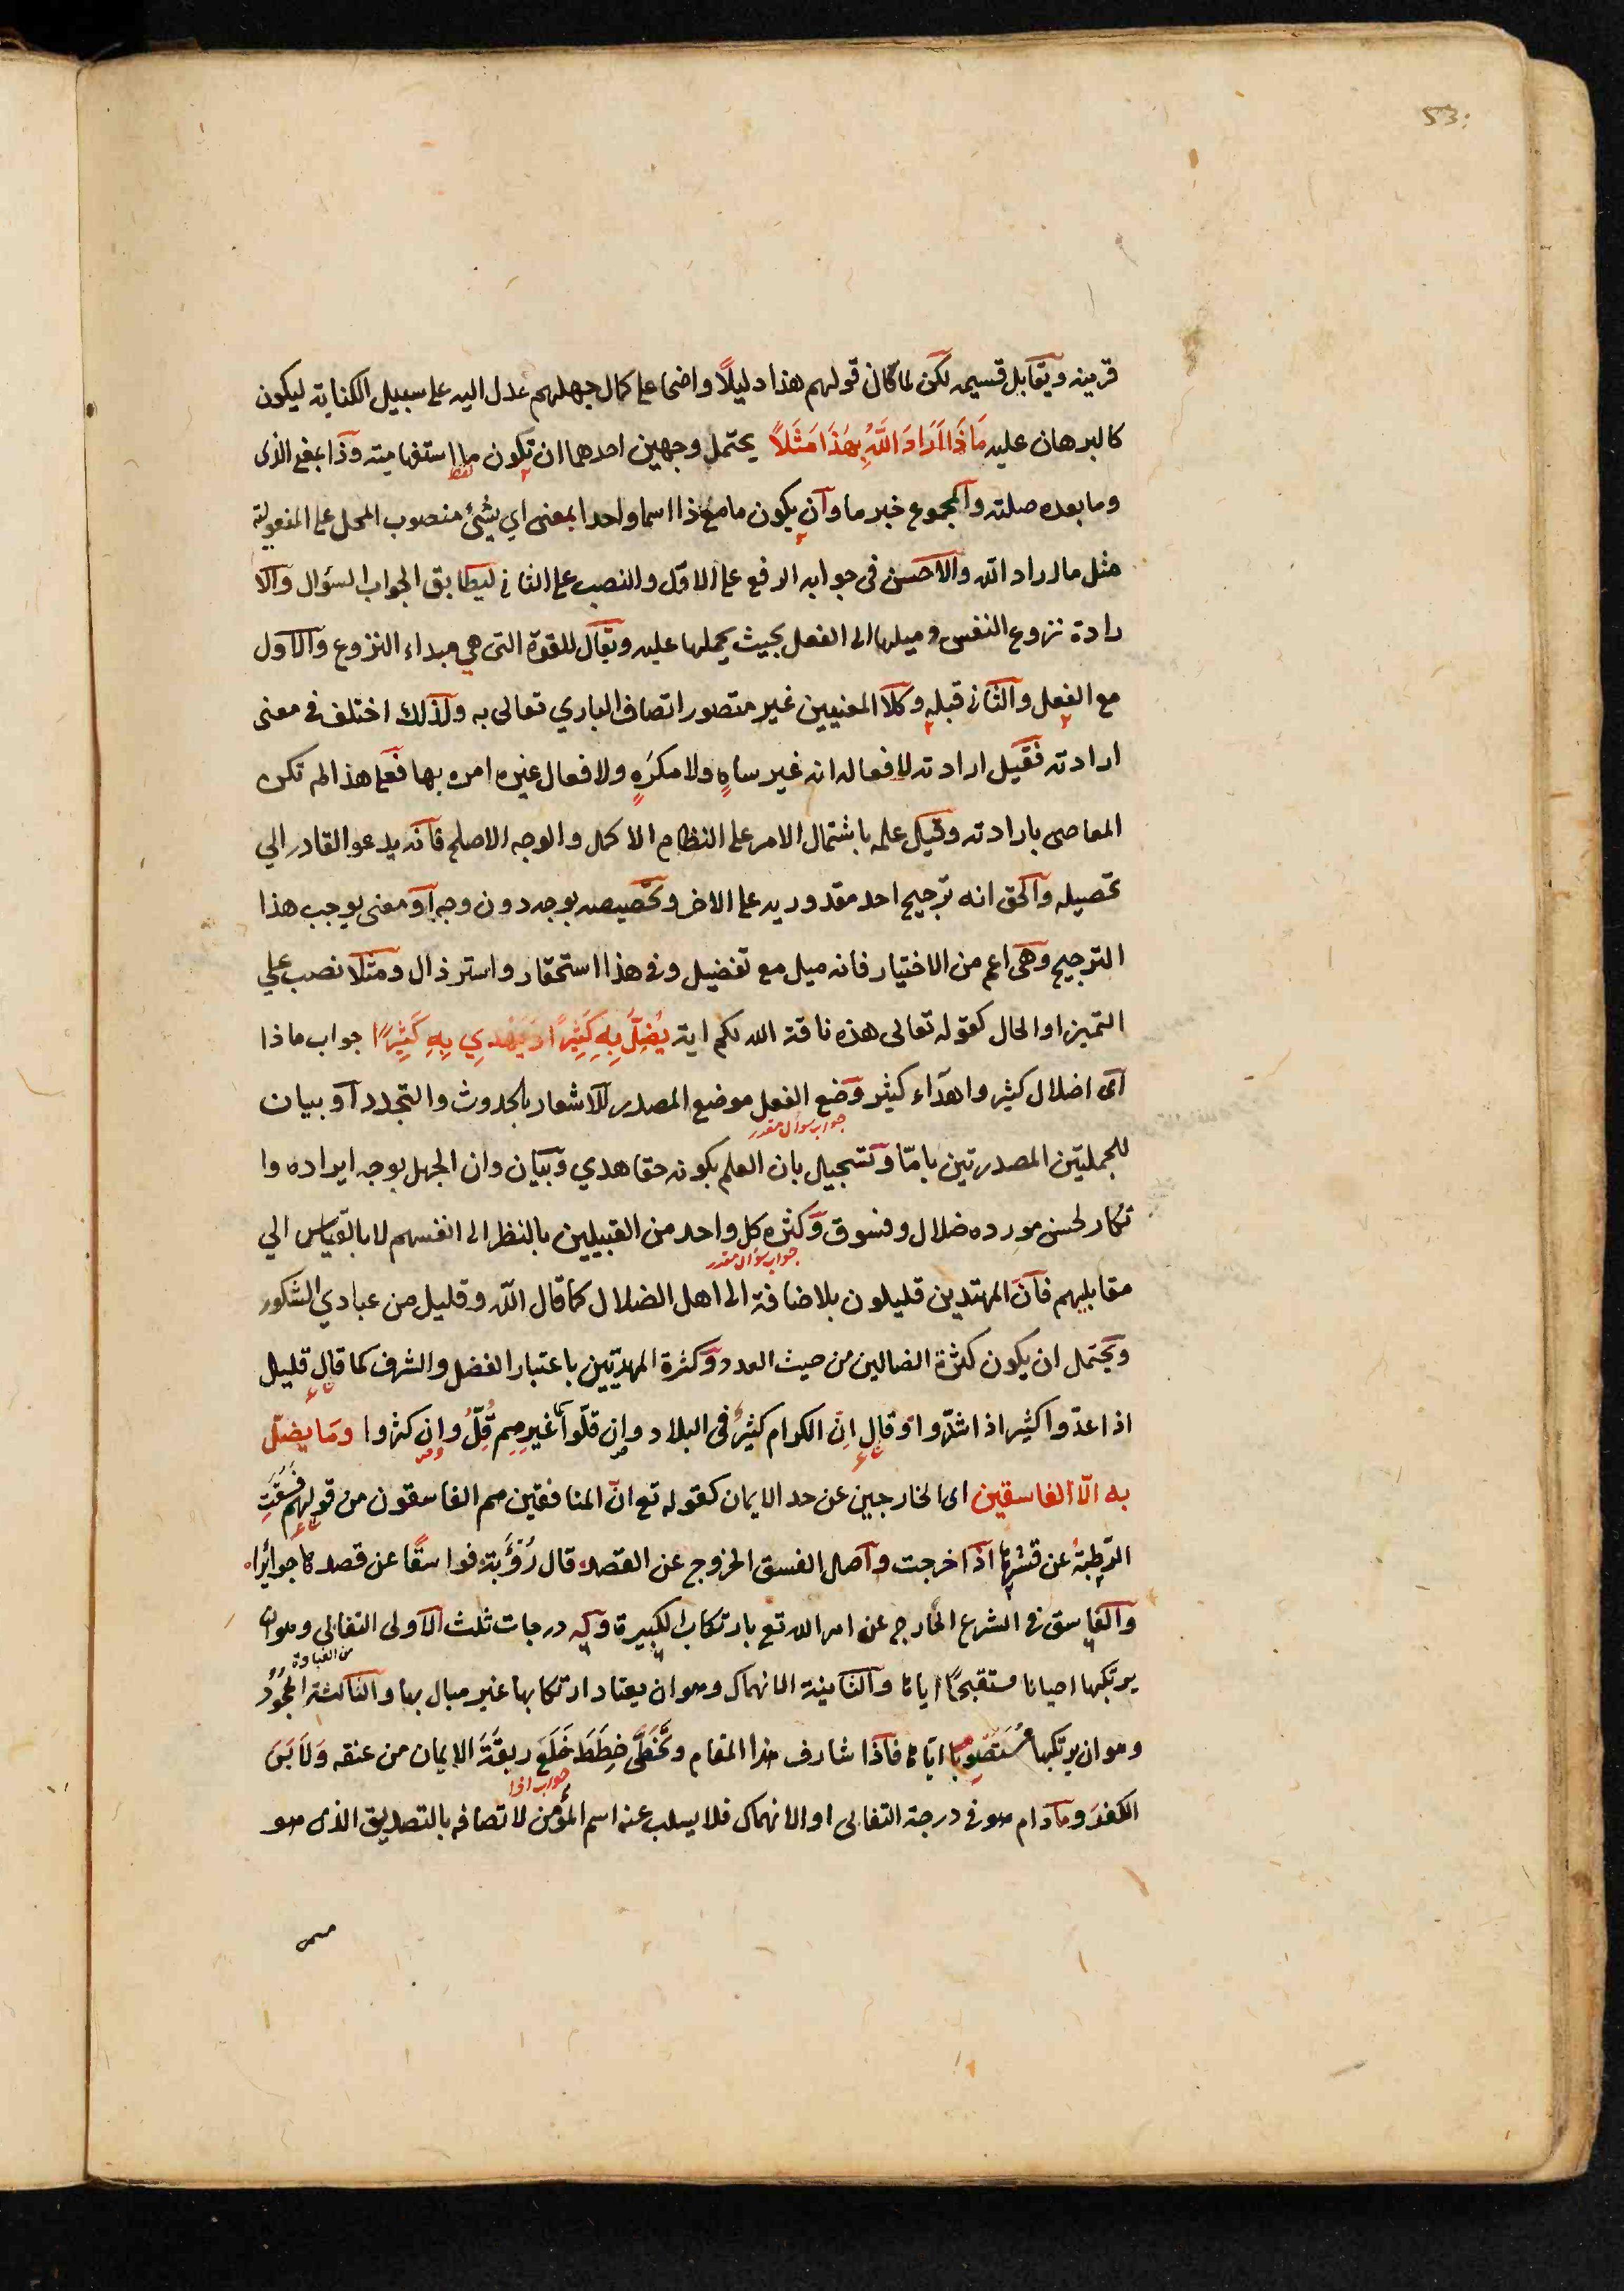 53:
قرينه ويقابل قسيمه لكن لما كان قولهم هذا دليلاً واضحا على كمال جهلهم عدل اليه على سبيل الكناية ليكون
كالبرهان عليه مَاذَا اَرَادَ اللَّهُ بِهَذَا مَثَلاً يحتمل وجهين احدهما ان تكون ما استفهامية وذا بمعنى الذى
وما بعده صلته والمجموع خبر ما وان يكون ما مع ذا اسما واحدا بمعنى اي شئ منصوب المحل على المفعولية
مثل ما اراد الله والاحسن فى جوابه الرفع على الاول والنصب على الثانى ليطابق الجواب السؤال والا
رادة نزوع النفس وميلها الى الفعل بحيث يحملها عليه ويقال للقوة التى هي مبداء النزوع والاول
مع الفعل والثانى قبله وكلا المعنيين غير متصور اتصاف الباري تعالى به ولذلك اختلف فى معنى
ارادته فقيل ارادته لافعاله انه غير ساهٍ ولا مكرَهٍ ولافعال غيره امره بها فعلى هذا لم تكن
المعاصى بارادته وقيل علمه باشتمال الامر على النظام الاكمل والوجه الاصلح فانه يدعو القادر الي
تحصيله والحق انه ترجيح احد مقدوريه على الاخر وتخصيصه بوجه دون وجه او معنى يوجب هذا
الترجيح وهى اعم من الاختيار فانه ميل مع تفضيل وفى هذا استحقار واسترذال ومثلا نصب علي
التميز او الحال كقوله تعالى هذه ناقة الله لكم اية يُضِلُّ بِهِ كَثِيرًا وَيَهْدِي بِهِ كَثِيرًا جواب ماذا
اى اضلال كثير واهداء كثير وضع الفعل موضع المصدر للاشعار بالحدوث والتجدد او بيان
جواب سوال مقدر
للجملتين المصدرتين باما وتسجيل بان العلم بكونه حقا هدي وبيان وان الجهل بوجه ايراده وا
نكار لحسن مورده ضلال وفسوق وكثرة كل واحد من القبيلين بالنظر الى انفسهم لا بالقياس الي
جواب سؤال مقدر
مقابليهم فان المهتدين قليلون بلاضافة الى اهل الضلال كما قال الله وقليل من عبادي الشكور
ويحتمل ان يكون كثرة الضالين من حيث العدد وكثرة المهديين باعتبار الفضل والشرف كما قال قليل
اذا عدوا كثير اذا شدّوا وقال انّ الكرام كثيرٌ فى البلاد وإن قلّوا كما غيرهم قُلٌّ وإن كثروا ومَا يضلّ
به الّا الفاسقين اى الخارجين عن حد الايمان كقوله تع انّ المنافقين هم الفاسقون من قولهم فَسَقَتِ
الرّطبةُ عن قشرها اذا خرجت واصل الفسق الخروج عن القصد قال رُؤْبَة فواسقًا عن قصدها جوائرا
والفاسق فى الشرع الخارج عن امر الله تع بارتكاب الكبيرة وله درجات ثلث الاولى التغابي وهو ان
من الغباوة
يرتكبها احيانا مستقبحًا اياها والثانية الانهماك وهو ان يعتاد ارتكابها غير مبال بها والثالثة الجُحُودُ
وهو ان يرتكبها مُستصوِبًا اياها فاذا شارف هذا المقام وتَخَطَّى خِطَطَهُ خَلَعَ ربقَةَ الايمان من عنقه وَلَابَسَ
جواب اذا
الكفرَ وما دام هو فى درجة التغابى او الانهماك فلا يسلب عنه اسم المؤمن لاتصافه بالتصديق الذى هو